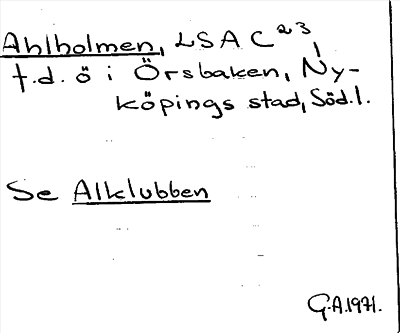 Ahlholmen, LSA C²³
f.d. ö i Örsbaken, Ny-
köpings stad, Söd.l.
Se Alklubben
G.A.1971.